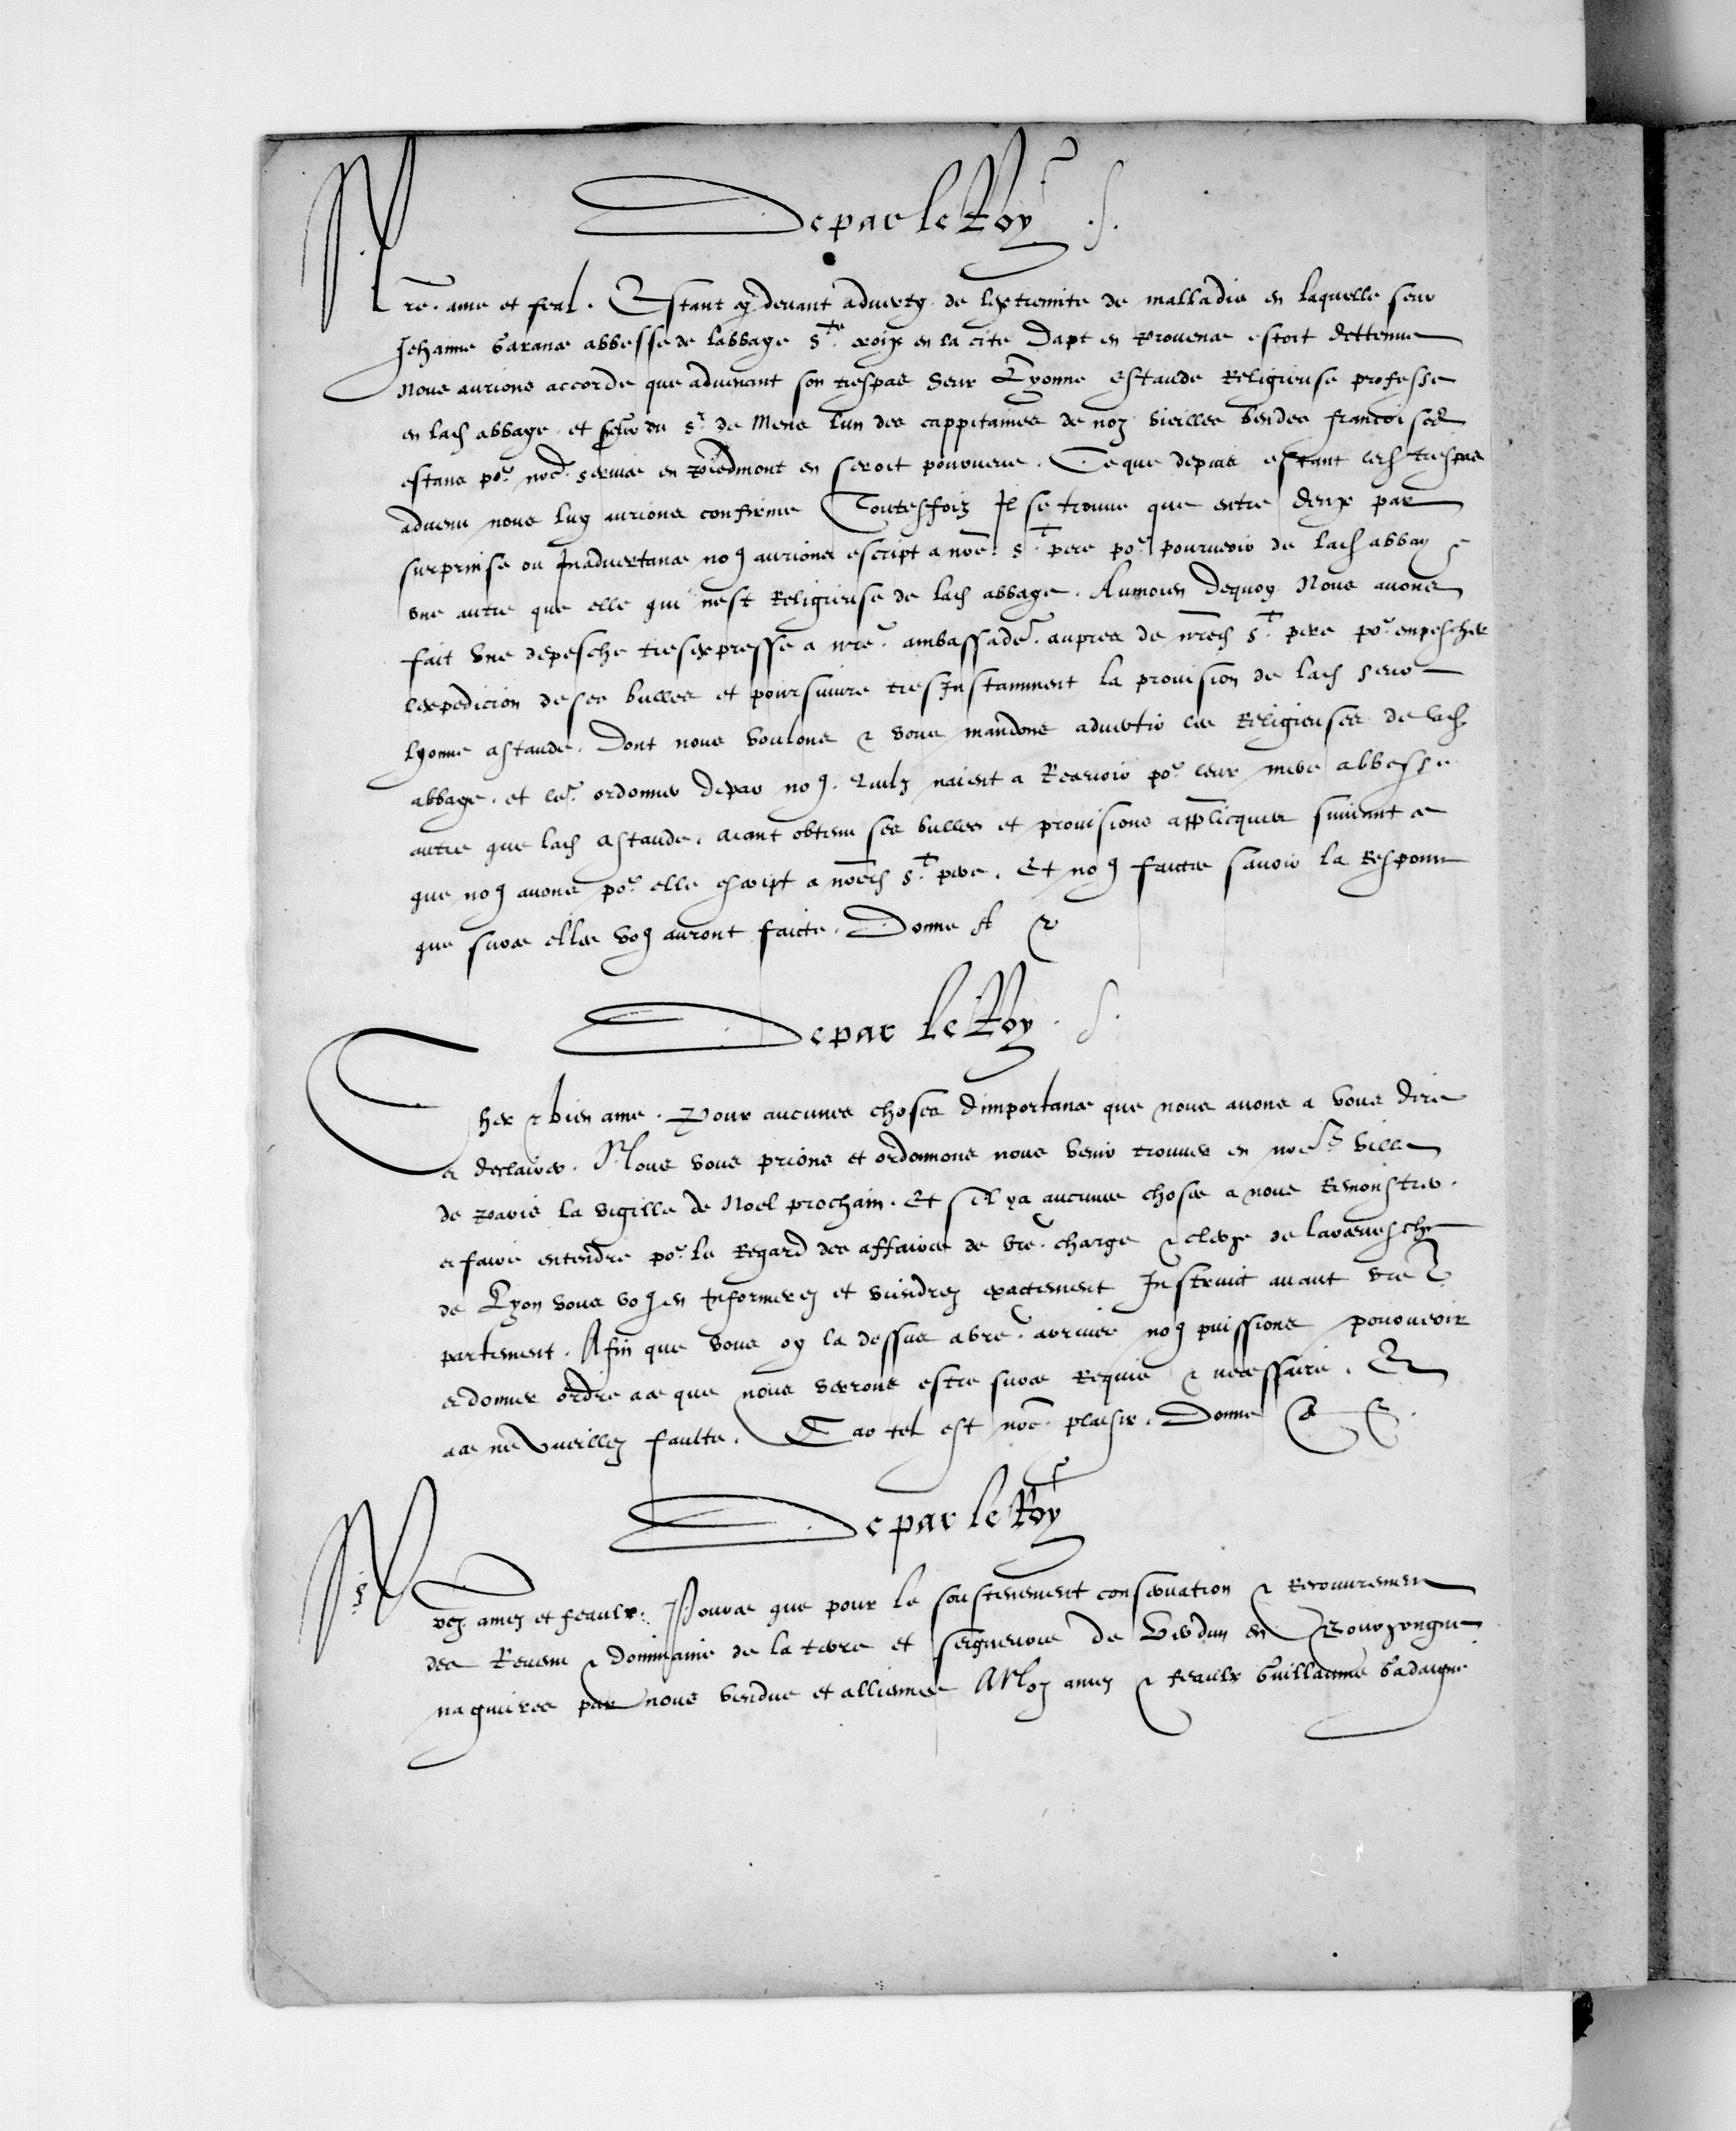 De par le Roy
Nre ame et feal. Estant cy devant adverty de lextremite de malladie en laquelle seur
Jehanne abbesse de labbaye Ste croix en la cite Dapt en Provence estoit dettenue
Nous aurions accorde que advenant son trespas seur Lyonne Astaude Religieuse professe
en lad abbaye et seur du Sr de Mens lun des cappitaines de noz vieilles bendes francoises
estans por nore service en Piedmont en seroit pourveue. Ce que depuis estant led trespas
advenu nous luy aurions confirme Toutesfoiz Il se trouve que entre deux par
surprinse ou Inadvertance nous aurions escript a nore St pere por pourveoir de lad abbaye
une autre que elle qui nest Religieuse de lad abbaye. Aumoien dequoy Nous avons
fait une depesche tresexpresse a nre ambassader aupres de nred St pere por empescher
lexpedicion de ses bulles et poursuivre tresInstamment la provision de lad seur
lyonne astaude. Dont nous voulons & vous mandons advertir les Religieuses de lad
abbaye. et ler ordonner depar nous. Quelz naient a Recevoir por leur mere abbesse
autre que lad astaude. aiant obtenu ses bulles et provisions applicques suivant ce
que nous avons por elle escript a nored St pere. Et nous faictes savoir la Responce
que surce elles vous auront faicte. Donne A &
De par le Roy
Cher & bien ame. Pour aucunes choses dimportance que nous avons a vous dire
et declairer. Nous vous prions et ordonnons nous venir trouver en nore ville
de Paris la vigille de Noel prochain. Et sil ya aucunes choses a nous Remonstrer.
et faire entendre por le Regard des affaires de vre charge & clerge de larcevesche
de Lyon vous vous en Informerez et viendrez exactement Instruict avant vre
partement. Afin que vous oy la dessus a vre arrivee nous puissions pourveoir
et donner ordre ace que nous verrons estre surce Requis & necessaire. Et
ace ne vueillez faulte. Car tel est nore plaisir. Donne &
De par le Roy
Noz amez et feaulx. Pource que pour le soustenement conservation & Recouvrement
des Revenu & dommaine de la terre et seigneurie de Verdun en Bourgongne
naguieres par nous vendue et allienee A Noz amez & feaulx Guillaume Gadaigne